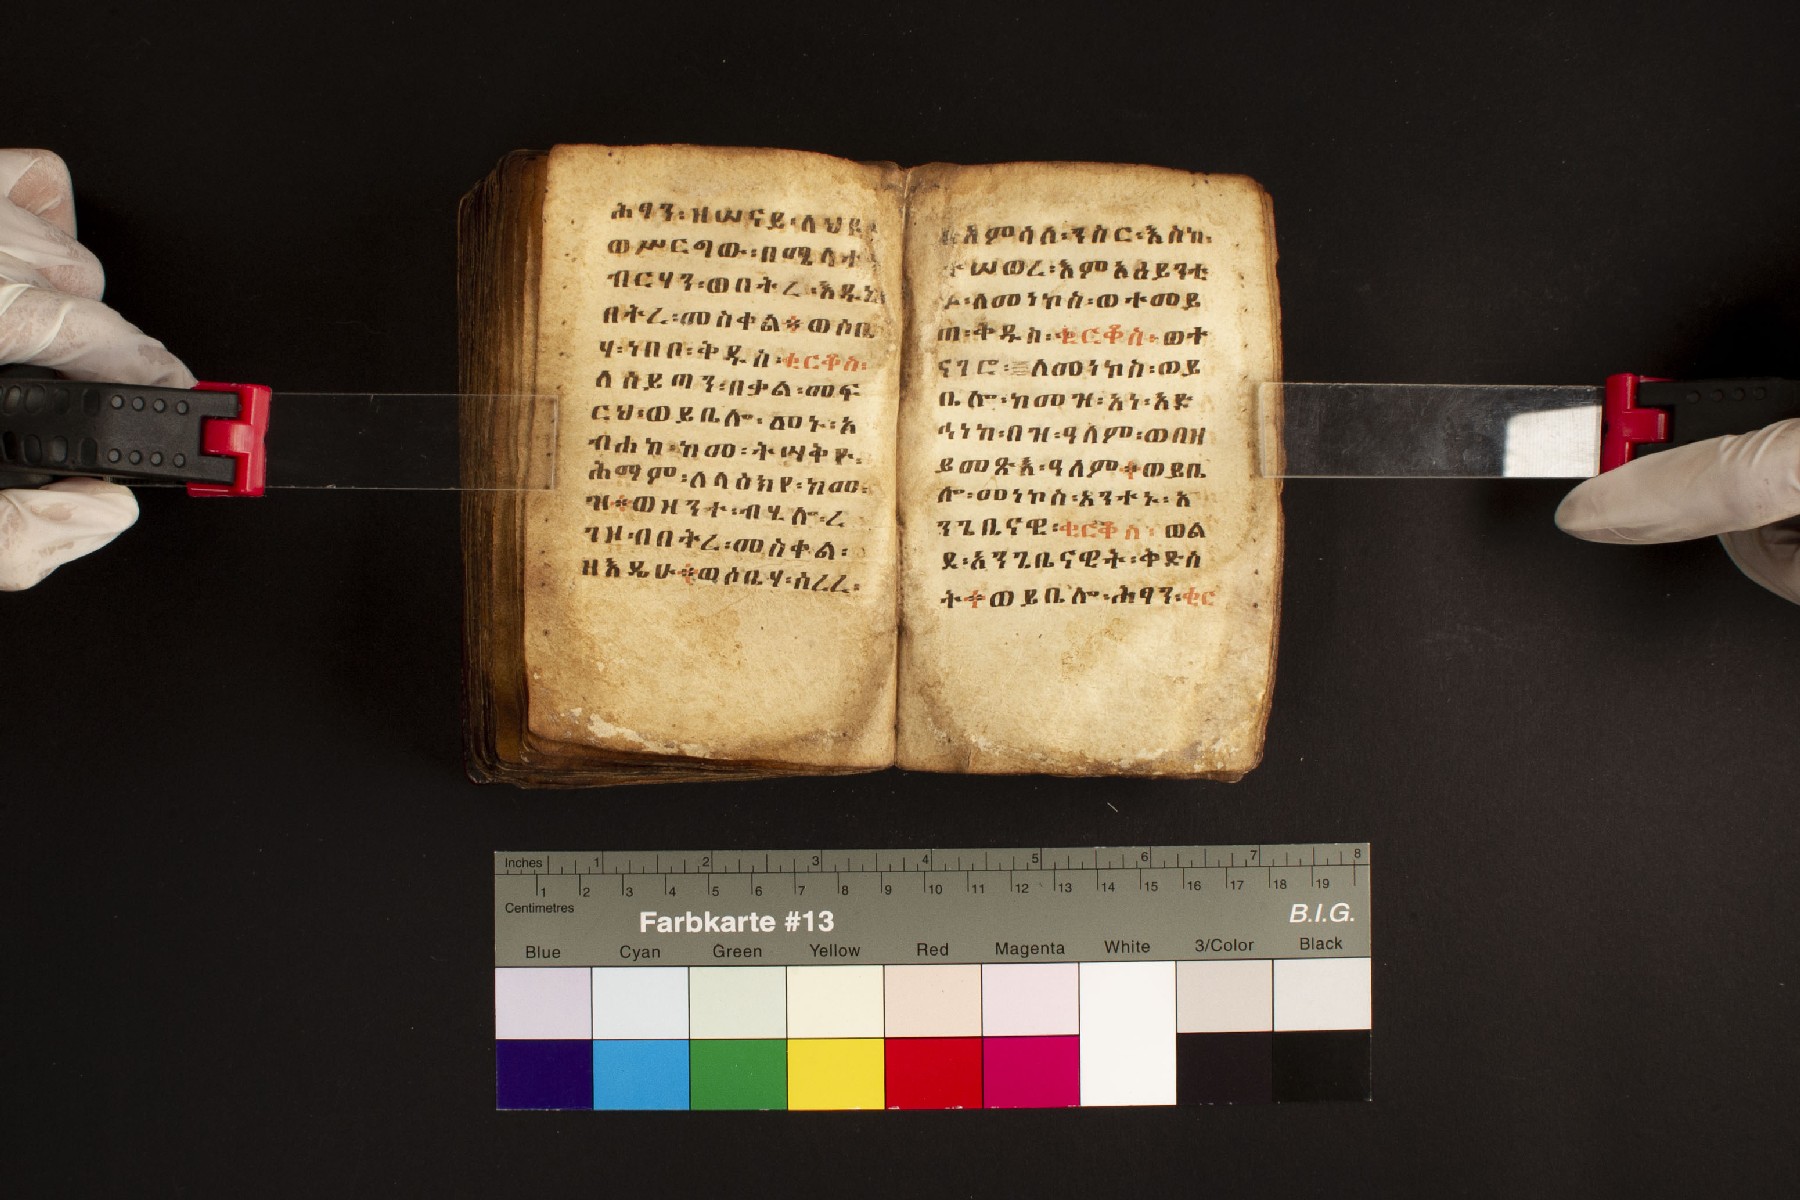 ሕፃን፡ዘሠናይ፡ላህዩ
ወሥርግው፡በሚላተ
ብርሃን፡ወበትረ፡እዴሁ
በትረ፡መስቀል፨ወሶቤ
ሃ፡ነበቦ፡ቅዱስ፡ቂርቆስ፡
ለሰይጣን፡በቃል፡መፍ
ርህ፡ወይቤሎ፡ለመኑ፡አ
ብሐከ፡ከመ፡ትሣቅዮ፡
ሕማም፡ለላስክየ፡ከመ፡
ዝ፨ወዘንተ፡ብሂሎ፡ረ
ገዞ፡ብበትረ፡መስቀል፡
ዘእዴሁ፨ወሶቤሃ፡ሰረረ፡
በአምሳለ፡ንስር፡እስከ፡
ተሠወረ፡እምአዕይንቲ
ሁ፡ለመነኮስ፡ወተመይ
ጠ፡ቅዱስ፡ቂርቆስ፡ወተ
ናገሮ፡ለመነኮስ፡ወይ
ቤሎ፡ከመዝ፡አነ፡አድ
ዓነከ፡በዝ፡ዓለም፡ወበዘ
ይመጽእ፡ዓለም፨ወይቤ
ሎ፡መነኮስ፡አንተኑ፡አ
ንጌቤናዊ፡ቂርቆስ፡ወል
ደ፡አንጌቤናዊት፡ቅድስ
ት፨ወይቤሎ፡ሕፃን፡ቂር
Inches 1 2 3 4 5 6 7 8
1 2 3 4 5 6 7 8 9 10 11 12 13 14 15 16 17 18 19
Centimetres
Farbkarte #13 B.I.G.
Blue Cyan Green Yellow Red Magenta White 3/Color Black